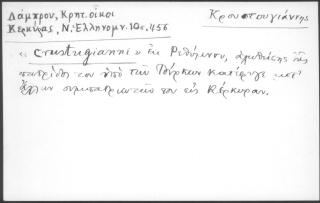 Λάμπρου, Κρητ. οἶκοι
Κερκύρας, Ν. Ἑλληνομν. 10ς, 456
Κρουστουγιάννης
« Crustugianni » ἐκ Ρεθύμνου, ἁλωθείσης τῆς
πατρίδος του ὑπὸ τῶν Τούρκων κατέφυγε μετ'
ἄλλων συμπατριωτῶν του εἰς Κέρκυραν.